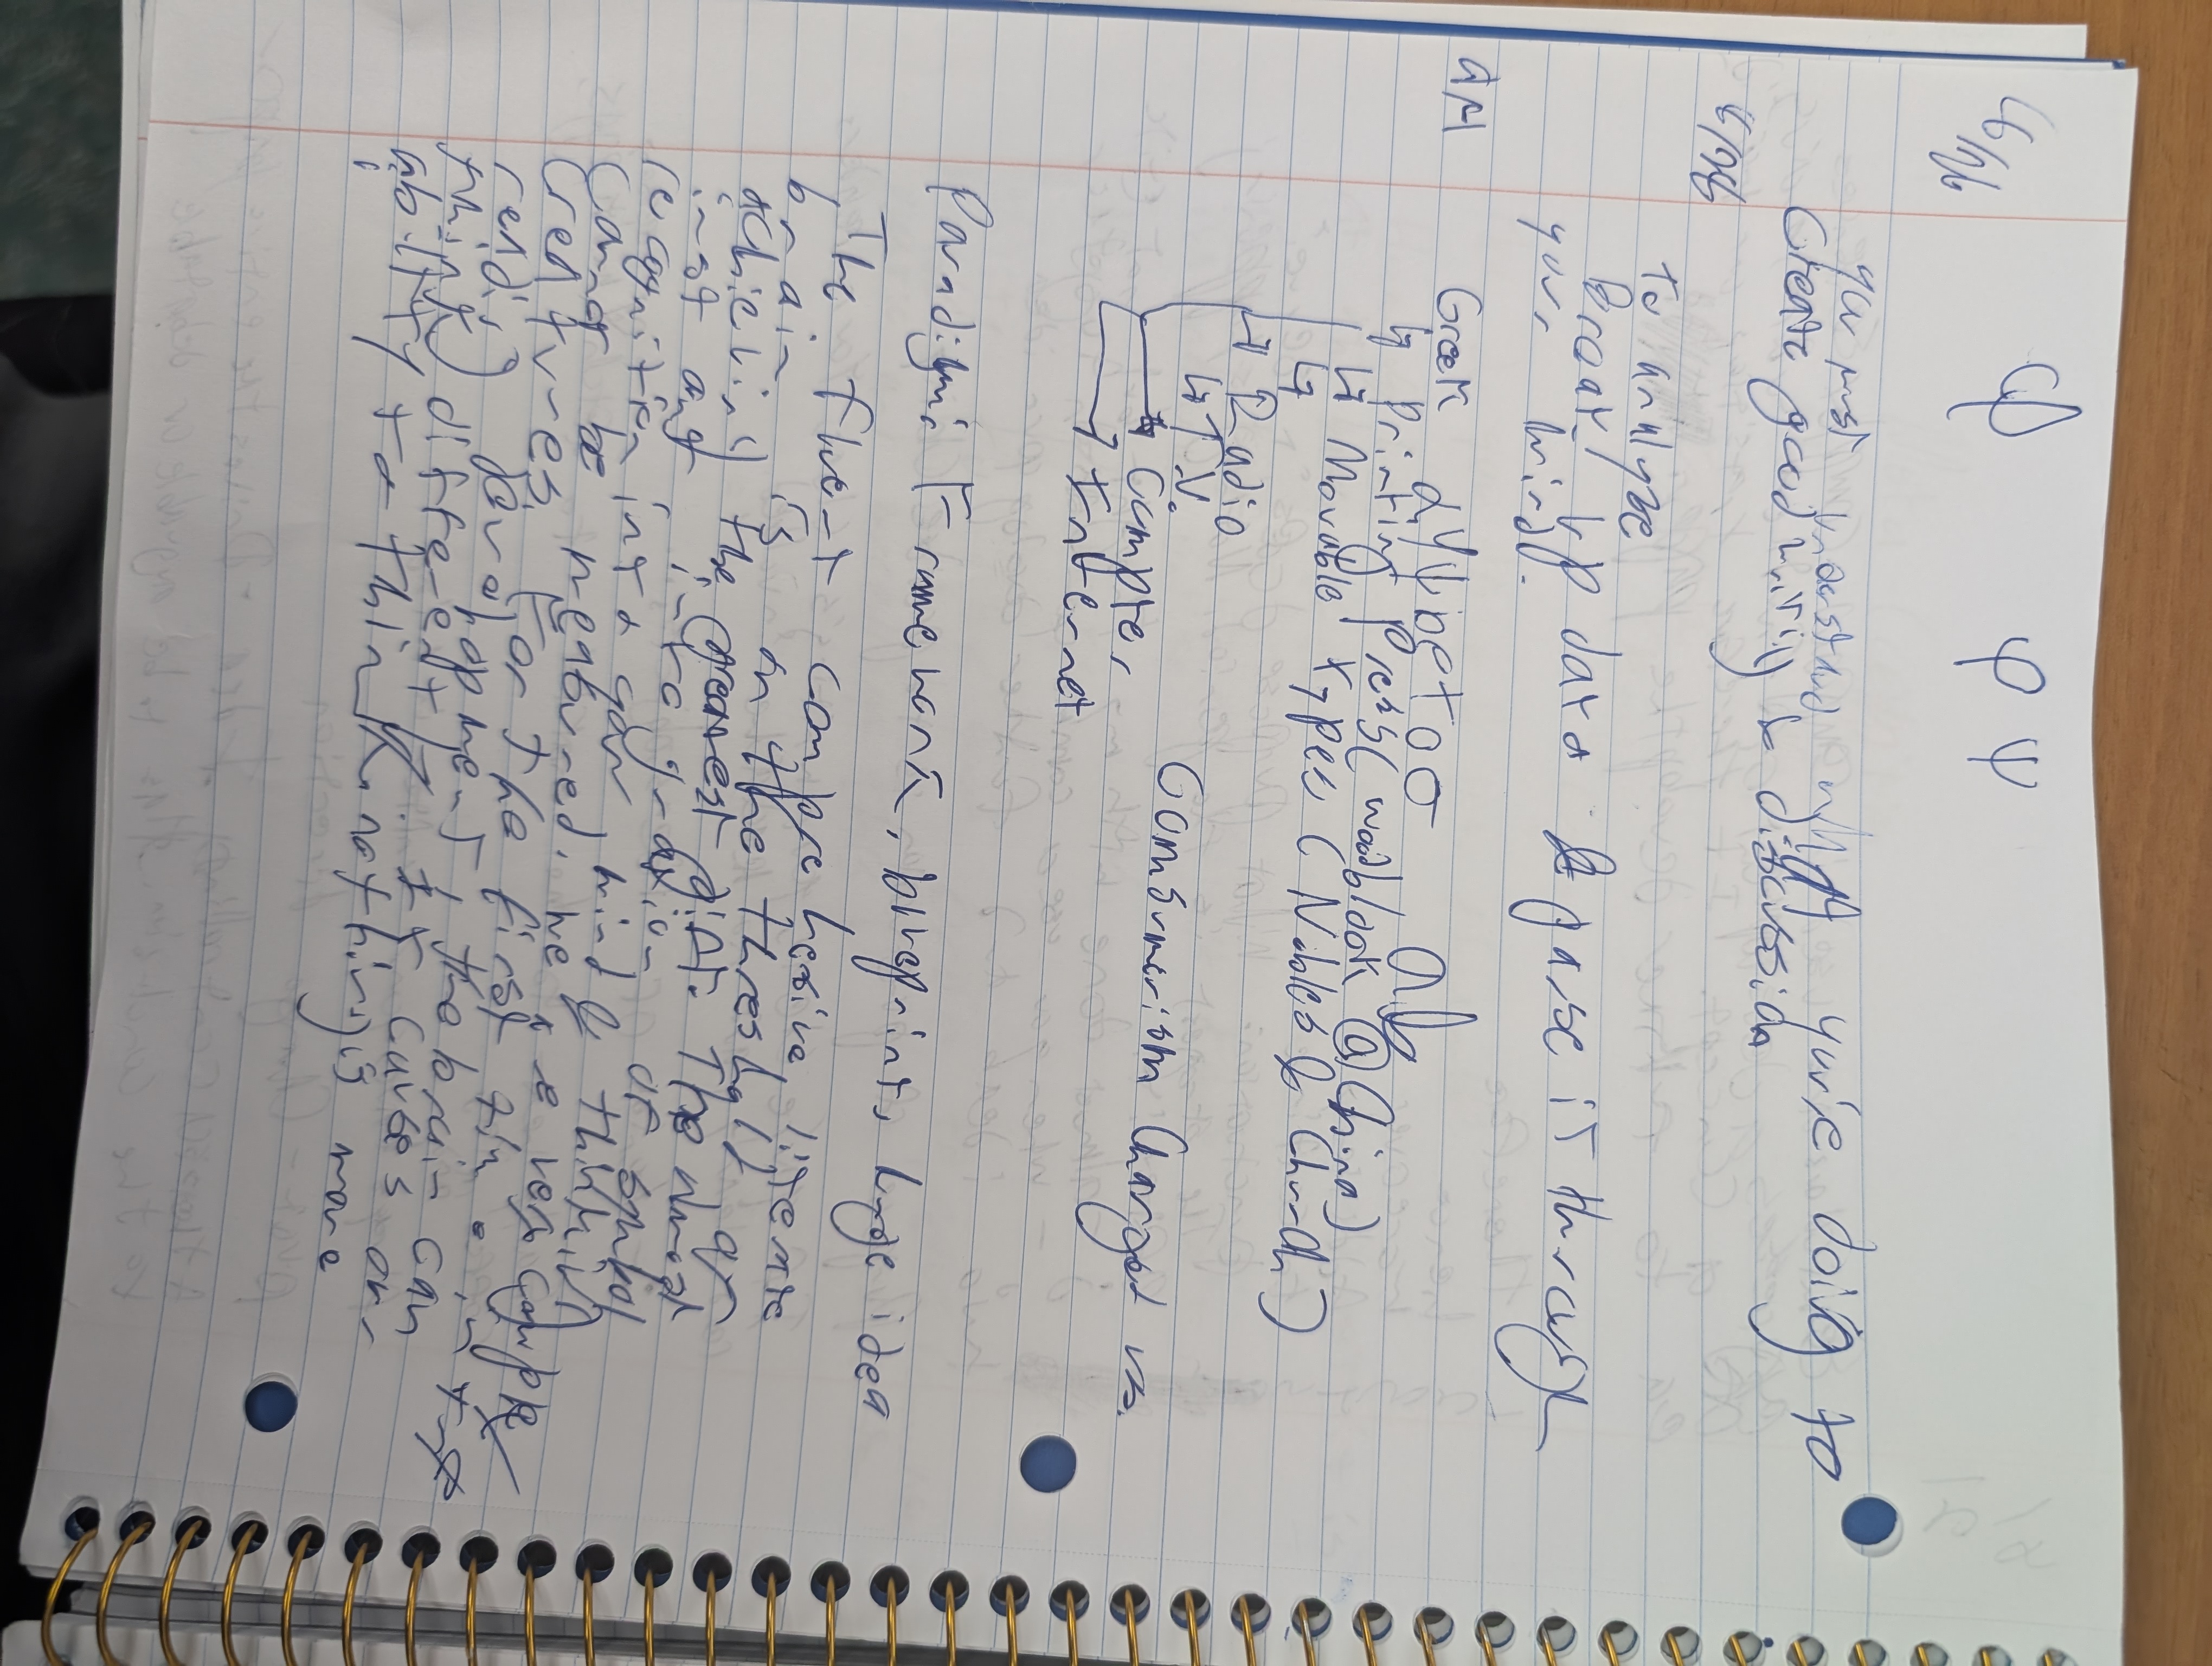 φ φ ψ
8/26
you must understand what you're doing to
Create good writing & discussion
8/28
To analyze
Break up data & parse it through
your mind.
Greek
↳ Printing Press (woodblook @ China)
↳ Movable types (Nobles & Church)
↳
↳ Radio
↳ T.V.
→ Compter
Comsumerism Changed vs.
→ Internet
Paradigm: Framework, blueprint, huge idea
The fluent comprehesive literate
brain is on the threshold of
achieving the greatest gift. The almost
instant intogration of symbol
recognition into your mind & thinking
Cannot be measured. we are very complex
Creatures. For the first time in the
reading development, the brain can
think differently. It causes our
ability to think. nothing is more